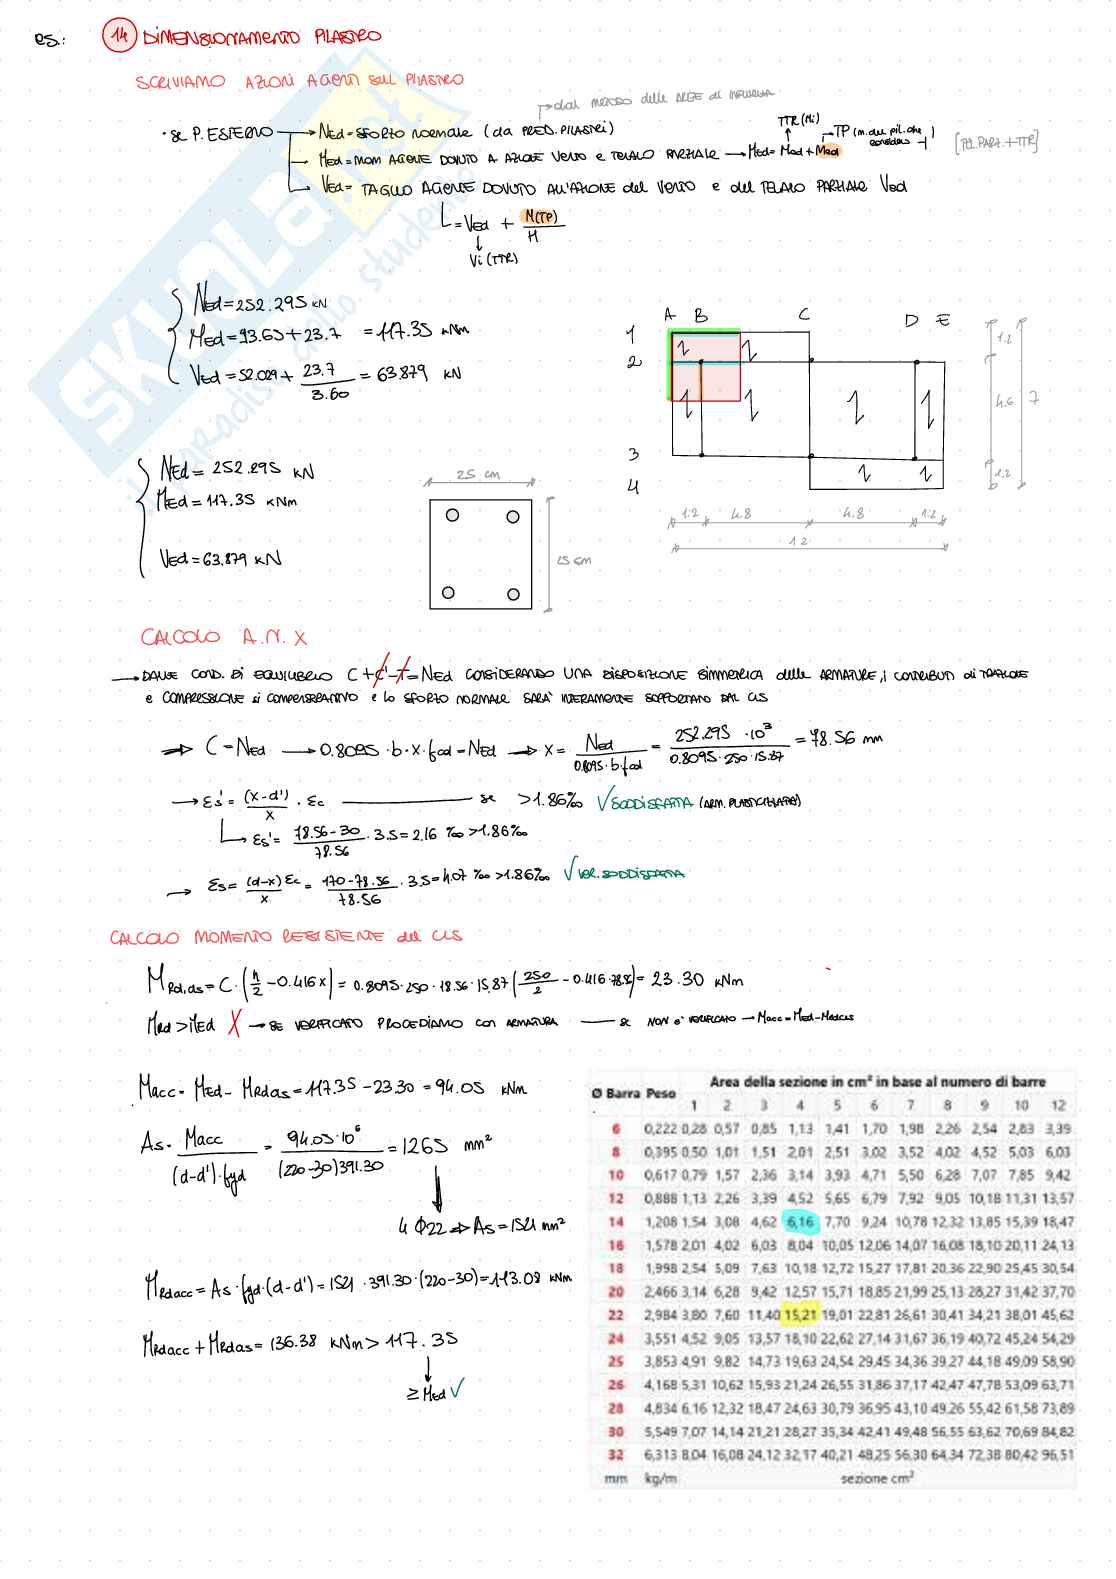 es: 14 DIMENSIONAMENTO PILASTRO
SCRIVIAMO AZIONI AGENTI SUL PILASTRO
dal METODO delle AREE di INFLUENZA
• SE P. ESTERNO → NEd = SFORZO NORMALE (da PRED. PILASTRI)
TTR (Mi)
TP (m. del pil. che considero)
→ MEd = MOM AGENTE DOVUTO A AZIONE VENTO E TELAIO PARZIALE → MEd = Med + Med
[TEL. PART. + TTR]
→ VEd = TAGLIO AGENTE DOVUTO ALL'AZIONE del VENTO e del TELAIO PARZIALE VEd
= VEd + M(TP)/H
Vi (TTR)
NEd = 252.295 kN
MEd = 93.65 + 23.7 = 117.35 kNm
VEd = 52.029 + 23.7/3.60 = 63.879 kN
A B C D E
1
2
3
4
1.2
4.6
7
1.2
1.2 4.8 4.8 1.2
12
NEd = 252.295 kN
MEd = 117.35 kNm
VEd = 63.879 kN
25 cm
25 cm
CALCOLO A.N. X
→ DALLE COND. DI EQUILIBRIO C + C' - T = NEd CONSIDERANDO UNA DISPOSIZIONE SIMMETRICA delle ARMATURE, i CONTRIBUTI di TRAZIONE
e COMPRESSIONE si COMPENSERANNO e lo SFORZO NORMALE SARA' INTERAMENTE SOPPORTATO DAL CLS
⇒ C = NEd → 0.8095 · b · x · fcd = NEd → x = NEd/(0.8095 · b · fcd) = 252.295 · 10³/(0.8095 · 250 · 15.87) = 78.56 mm
→ εs' = (x-d')/x · εc — se > 1.86‰ √ SODDISFATTA (ARM. PLASTICIZZATA)
εs' = (78.56 - 30)/78.56 · 3.5 = 2.16 ‰ > 1.86‰
→ εs = (d-x)εc/x = (170 - 78.56)/78.56 · 3.5 = 4.07 ‰ > 1.86‰ √ VER. SODDISFATTA
CALCOLO MOMENTO RESISTENTE del CLS
MRd,cls = C · (h/2 - 0.416x) = 0.8095 · 250 · 78.56 · 15.87 (250/2 - 0.416 · 78.56) = 23.30 kNm
MRd > MEd X → SE VERIFICATO PROCEDIAMO con ARMATURA — se NON è VERIFICATO → Macc = MEd - MRdcls
Macc = MEd - MRdcls = 117.35 - 23.30 = 94.05 kNm
As = Macc/((d-d') · fyd) = 94.05 · 10⁶/((220-30)391.30) = 1265 mm²
4 Φ22 ⇒ As = 1521 mm²
MRdacc = As · fyd · (d-d') = 1521 · 391.30 · (220-30) = 113.08 kNm
MRdacc + MRdcls = 136.38 kNm > 117.35
≥ MEd √
Ø Barra Peso Area della sezione in cm² in base al numero di barre
1 2 3 4 5 6 7 8 9 10 12
6 0,222 0,28 0,57 0,85 1,13 1,41 1,70 1,98 2,26 2,54 2,83 3,39
8 0,395 0,50 1,01 1,51 2,01 2,51 3,02 3,52 4,02 4,52 5,03 6,03
10 0,617 0,79 1,57 2,36 3,14 3,93 4,71 5,50 6,28 7,07 7,85 9,42
12 0,888 1,13 2,26 3,39 4,52 5,65 6,79 7,92 9,05 10,18 11,31 13,57
14 1,208 1,54 3,08 4,62 6,16 7,70 9,24 10,78 12,32 13,85 15,39 18,47
16 1,578 2,01 4,02 6,03 8,04 10,05 12,06 14,07 16,08 18,10 20,11 24,13
18 1,998 2,54 5,09 7,63 10,18 12,72 15,27 17,81 20,36 22,90 25,45 30,54
20 2,466 3,14 6,28 9,42 12,57 15,71 18,85 21,99 25,13 28,27 31,42 37,70
22 2,984 3,80 7,60 11,40 15,21 19,01 22,81 26,61 30,41 34,21 38,01 45,62
24 3,551 4,52 9,05 13,57 18,10 22,62 27,14 31,67 36,19 40,72 45,24 54,29
25 3,853 4,91 9,82 14,73 19,63 24,54 29,45 34,36 39,27 44,18 49,09 58,90
26 4,168 5,31 10,62 15,93 21,24 26,55 31,86 37,17 42,47 47,78 53,09 63,71
28 4,834 6,16 12,32 18,47 24,63 30,79 36,95 43,10 49,26 55,42 61,58 73,89
30 5,549 7,07 14,14 21,21 28,27 35,34 42,41 49,48 56,55 63,62 70,69 84,82
32 6,313 8,04 16,08 24,12 32,17 40,21 48,25 56,30 64,34 72,38 80,42 96,51
mm kg/m sezione cm²
SKUOLA.net
il paradiso dello studente